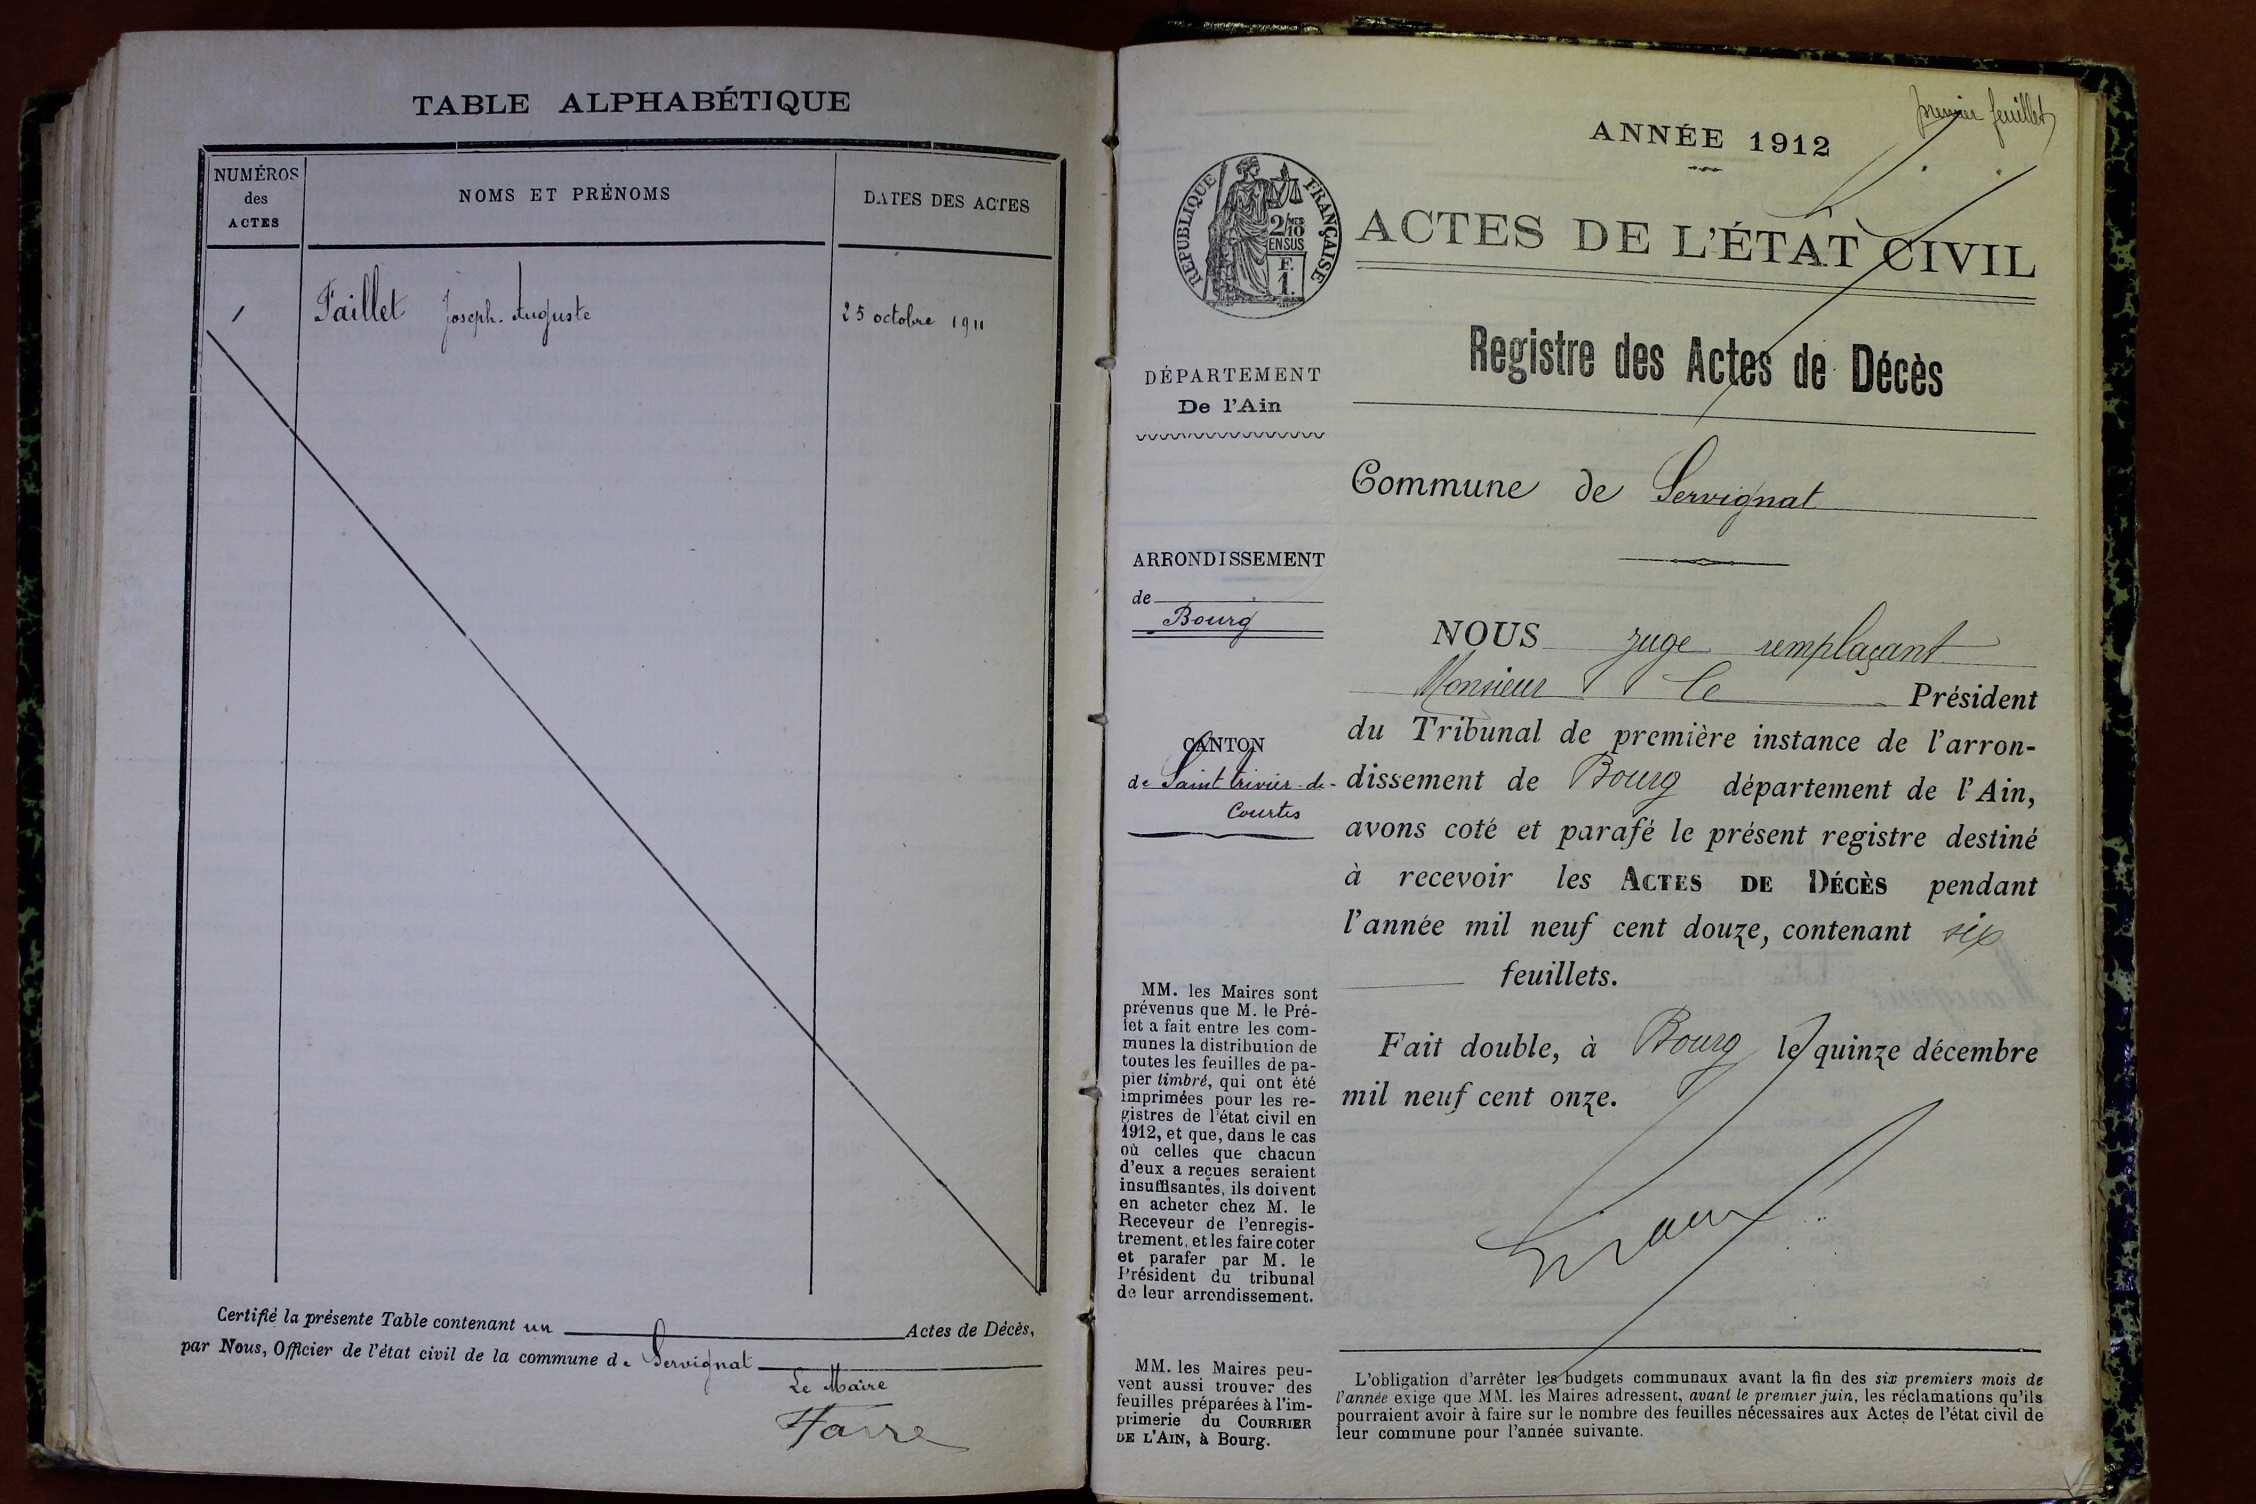 TABLE ALPHABÉTIQUE
NUMÉROS
des
ACTES
NOMS ET PRÉNOMS
DATES DES ACTES
1 Faillet Joseph-Auguste 25 octobre 1911
Certifié la présente Table contenant un Actes de Décès,
par Nous, Officier de l'état civil de la commune de Servignat
Le Maire
Favre
premier feuillet
ANNÉE 1912
REPUBLIQUE FRANÇAISE
2/10 MES
EN SUS
F.
1.
ACTES DE L'ÉTAT CIVIL
Registre des Actes de Décès
DÉPARTEMENT
De l'Ain
Commune de Servignat
ARRONDISSEMENT
de
Bourg
CANTON
de Saint-Trivier-de-
Courtes
MM. les Maires sont
prévenus que M. le Pré-
fet a fait entre les com-
munes la distribution de
toutes les feuilles de pa-
pier timbré, qui ont été
imprimées pour les re-
gistres de l'état civil en
1912, et que, dans le cas
où celles que chacun
d'eux a reçues seraient
insuffisantes, ils doivent
en acheter chez M. le
Receveur de l'enregis-
trement, et les faire coter
et parafer par M. le
Président du tribunal
de leur arrondissement.
MM. les Maires peu-
vent aussi trouver des
feuilles préparées à l'im-
primerie du COURRIER
DE L'AIN, à Bourg.
NOUS juge remplaçant
Monsieur le Président
du Tribunal de première instance de l'arron-
dissement de Bourg département de l'Ain,
avons coté et parafé le présent registre destiné
à recevoir les ACTES DE DÉCÈS pendant
l'année mil neuf cent douze, contenant six
feuillets.
Fait double, à Bourg le quinze décembre
mil neuf cent onze.
L'obligation d'arrêter les budgets communaux avant la fin des six premiers mois de
l'année exige que MM. les Maires adressent, avant le premier juin, les réclamations qu'ils
pourraient avoir à faire sur le nombre des feuilles nécessaires aux Actes de l'état civil de
leur commune pour l'année suivante.